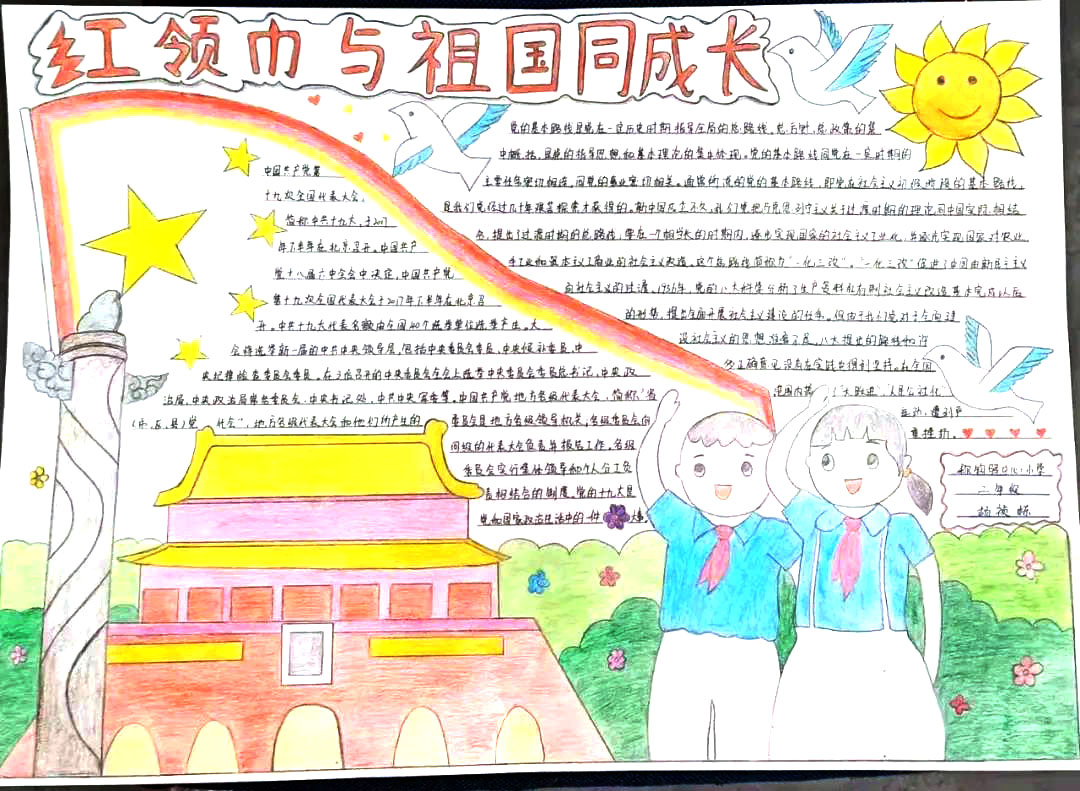 红领巾与祖国同成长
中国共产党第
十九次全国代表大会,
简称中共十九大,于2017
年下半年在北京召开。中国共产
党十八届六中全会中决定,中国共产党
第十九次全国代表大会于2017年下半年在北京召
开。中共十九大代表名额由全国40个选举单位选举产生。大
会将选举新一届的中共中央领导层,包括中央委员会委员、中央候补委员、中
央纪律检查委员会委员。在
治局、中央政治局常务委员会、中央书记处、中共中央军委等。中国共产党地方各级代表大会,简称“省
(市、区、县)党代会”,地方各级代表大会和他们所产生的
委员会是地方各级领导机关,各级委员会向
同级的代表大会负责并报告工作。各级
委员会实行集体领导和个人分工负
责相结合的制度。党的十九大是
党和国家政治生活中的一件大事。
党的基本路线是党在一定历史时期指导全局的总路线、总方针、总政策的集
中概括,是党的指导思想和基本理论的集中体现。党的基本路线同党在一定时期的
主要任务密切相连,同党的事业密切相关。通常所说的党的基本路线,即党在社会主义初级阶段的基本路线,
是我们党经过几十年艰苦探索才获得的。新中国成立不久,我们党把马克思列宁主义关于过渡时期的理论同中国实际相结
合,提出了过渡时期的总路线,要在一个相当长的时期内,逐步实现国家的社会主义工业化,并逐步实现国家对农业、
手工业和资本主义工商业的社会主义改造。这个总路线简称为“一化三改”。“一化三改”促进了中国由新民主主义
向社会主义的过渡。1956年,党的八大科学分析了生产资料私有制社会主义改造基本完成以后
的形势,提出全面开展社会主义建设的任务。但由于我们党对于全面建
设社会主义的思想准备不足,八大提出的路线和许
多正确意见没有在实践中得到坚持。在全国
范围内 “大跃进”、人民公社化
运动,遭到严
重挫折。
中心小学
二年级
杨